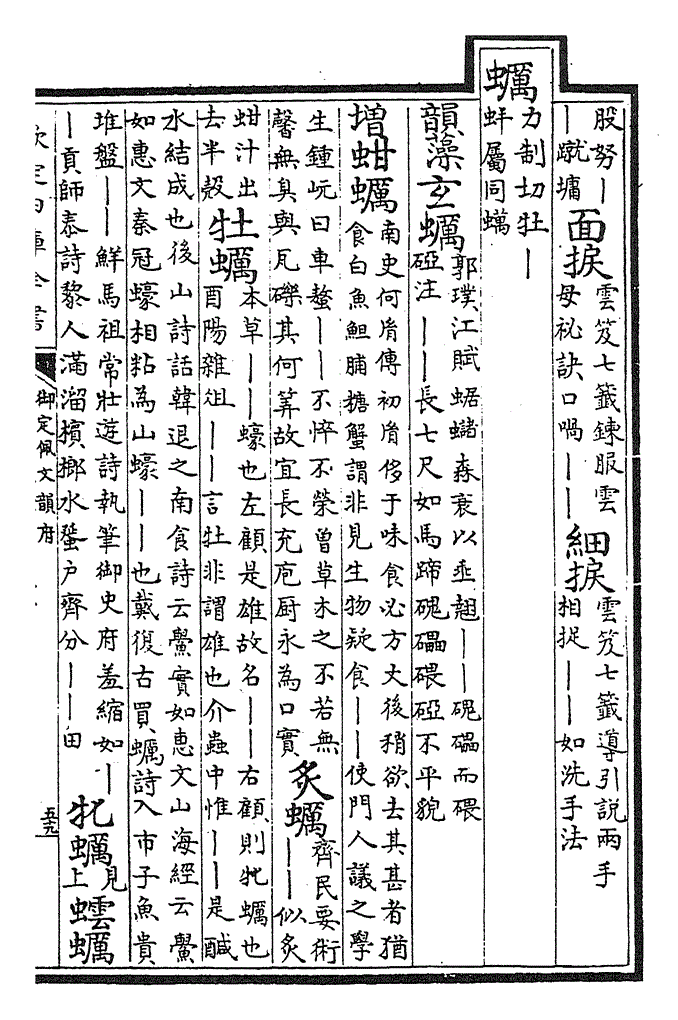 股努｜｜蹴墉 面捩 雲笈七籤鍊服雲母祕訣口喎｜｜ 細捩 雲笈七籤導引說兩手相捉｜｜如洗手法
蠣 力制切牡｜蚌屬同蠇
韻藻玄蠣 郭璞江賦蜛蝫森衰以垂翹｜｜磈磥而碨䃁注｜｜長七尺如馬蹄磈磥碨䃁不平貌
増蚶蠣 南史何𦙍傳初𦙍侈于味食必方丈後稍欲去其甚者猶食白魚䱇脯糖蟹謂非見生物疑食｜｜使門人議之學
生鍾岏曰車螯｜｜不悴不榮曾草木之不若無馨無臭與瓦礫其何筭故宜長充庖厨永為口實 炙蠣 齊民要術｜｜似炙
蚶汁出去半殻 牡蠣 本草｜｜蠔也左顧是雄故名｜｜右顧則牝蠣也酉陽雜俎｜｜言牡非謂雄也介蟲中惟｜｜是鹹
水結成也後山詩話韓退之南食詩云鱟實如惠文山海經云鱟如惠文秦冠蠔相粘為山蠔｜｜也戴復古買蠣詩入市子魚貴
堆盤｜｜鮮馬祖常壯遊詩執筆御史府羞縮如｜｜貢師泰詩黎人滿溜檳榔水蜑户齊分｜｜田 牝蠣 見上 蠣
欽定四庫全書 御定佩文韻府 五十九